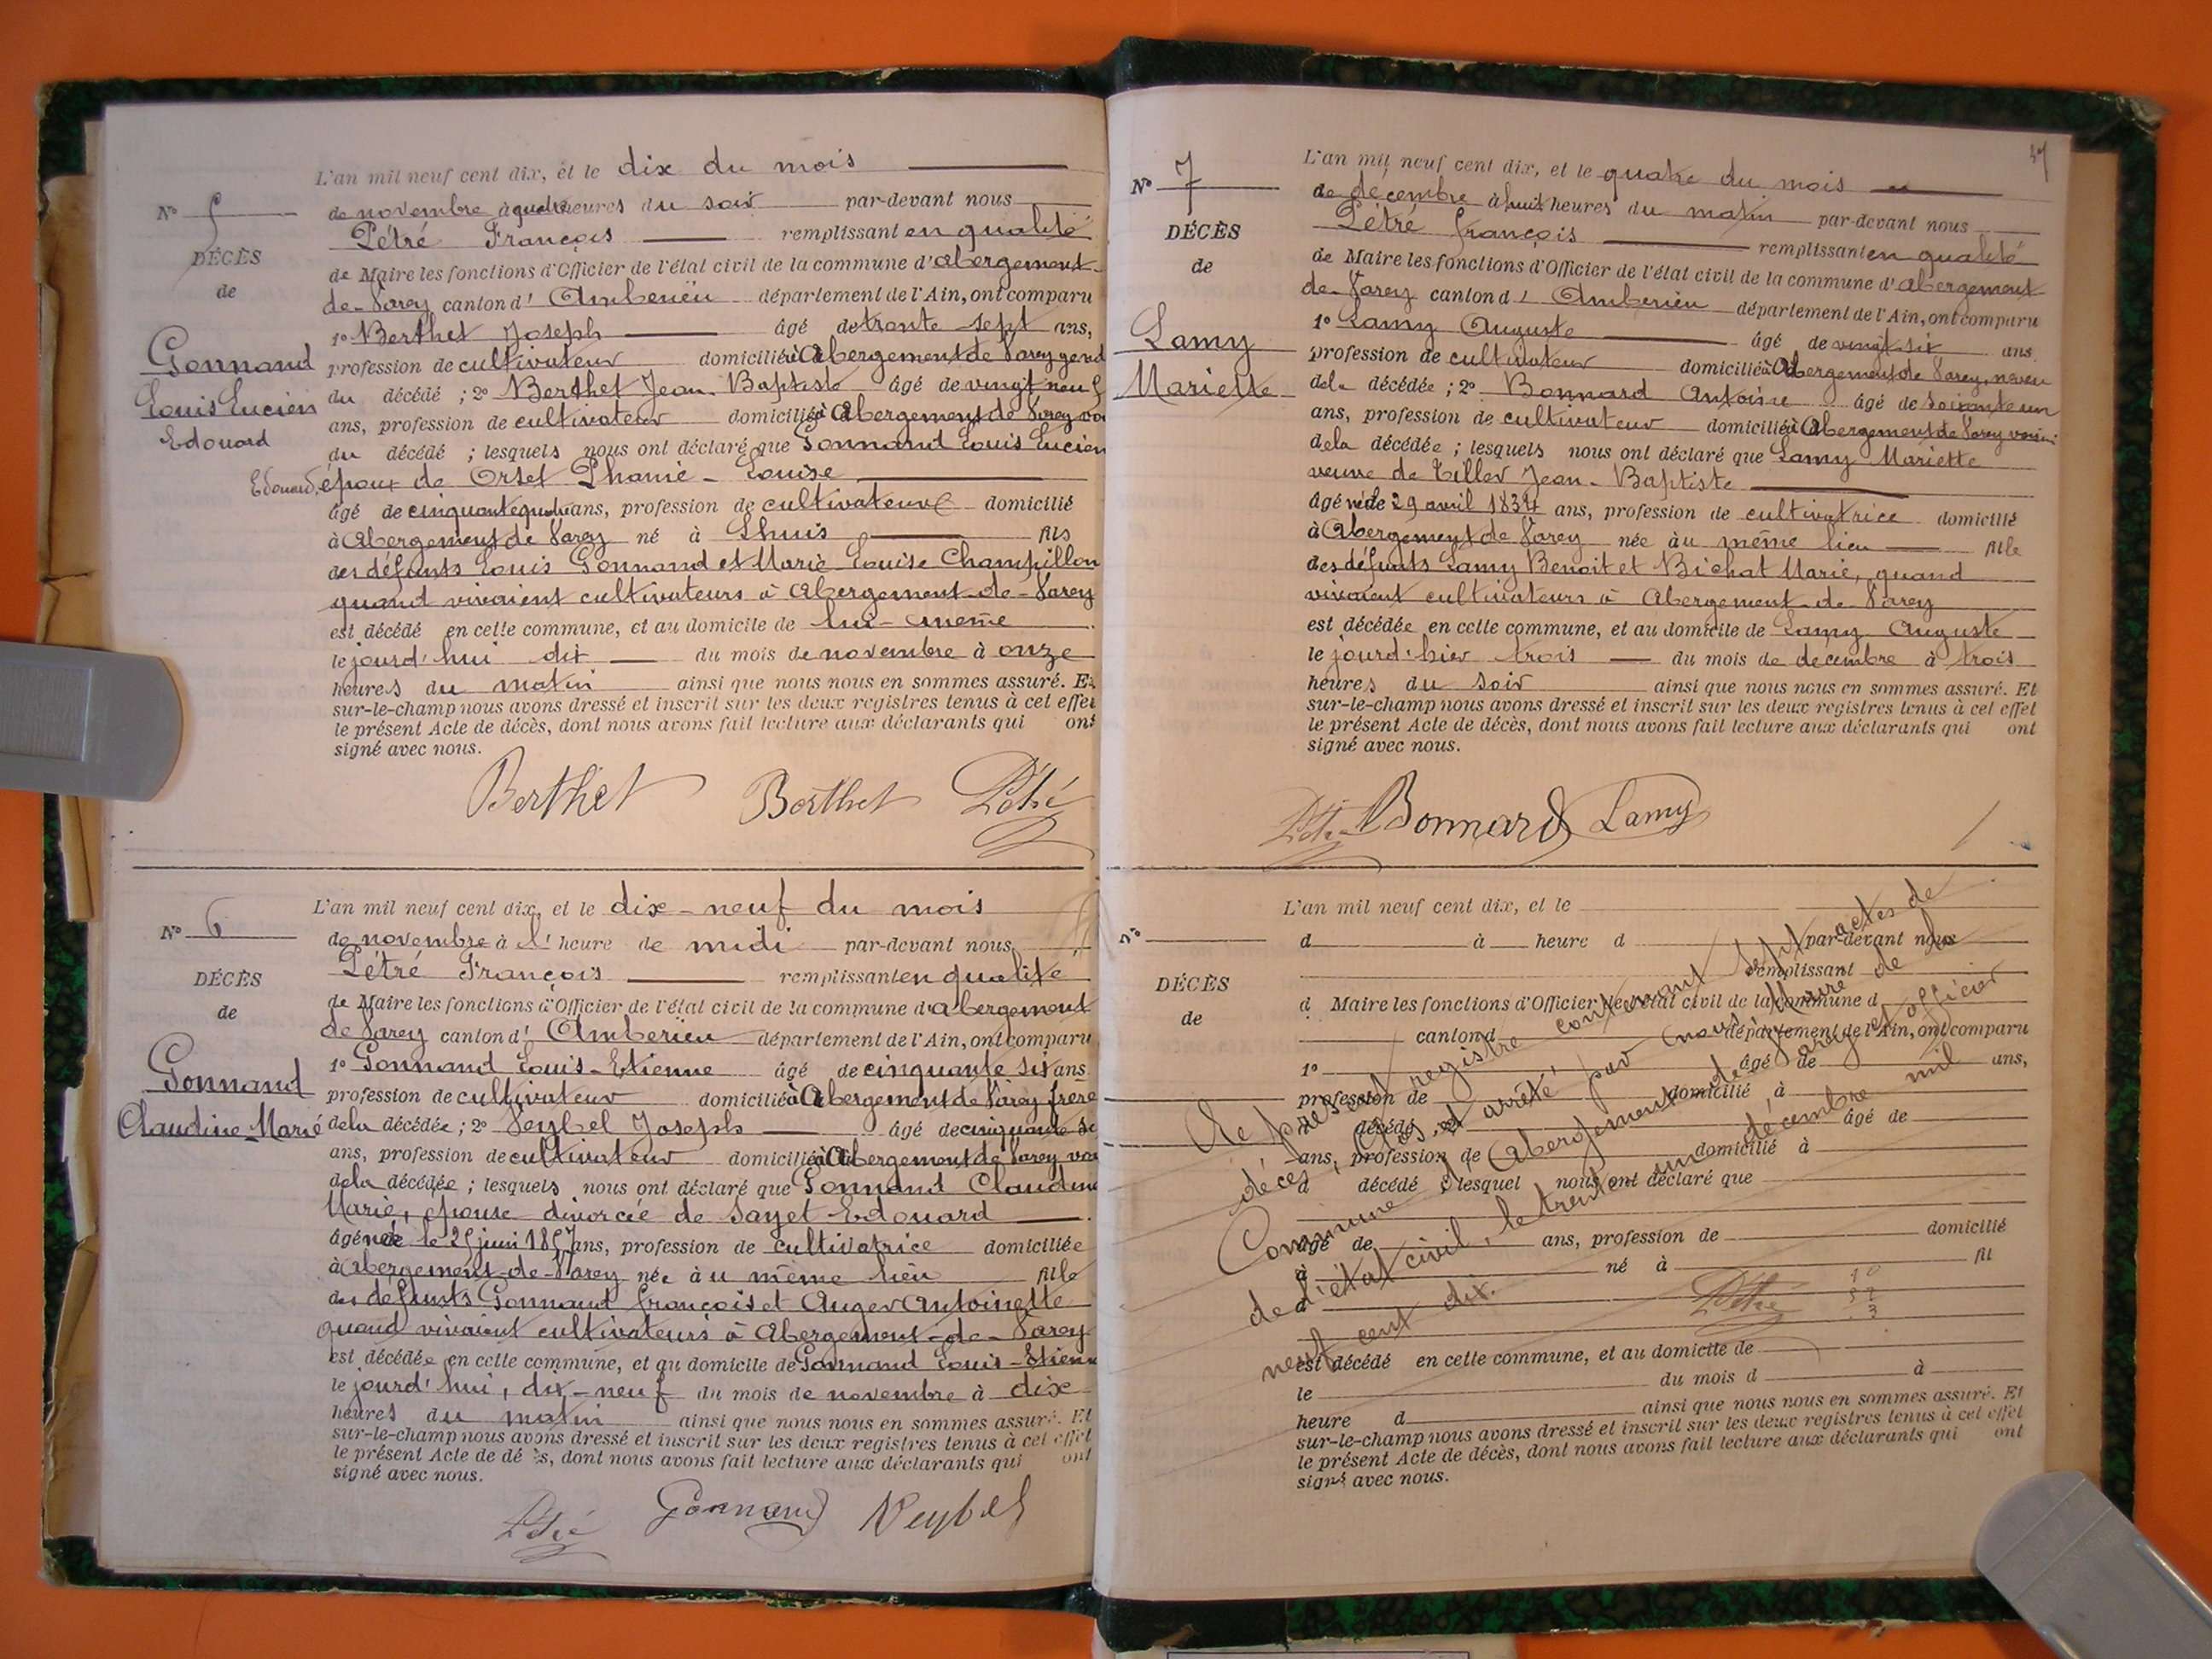 L'an mil neuf cent dix, et le dix du mois
N° 5
de novembre à quatre heures du soir par-devant nous
Pétré François remplissant en qualité
DÉCÈS
de Maire les fonctions d'Officier de l'état civil de la commune d'Abergement-
de
de-Varey canton d'Ambérieu département de l'Ain, ont comparu
1° Berthet Joseph âgé de trente-sept ans,
Gonnand
profession de cultivateur domicilié à Abergement de Varey gend
Louis Lucien
du décédé ; 2° Berthet Jean-Baptiste âgé de vingt neuf
Edouard
ans, profession de cultivateur domicilié à Abergement de Varey voi
du décédé ; lesquels nous ont déclaré que Gonnand Louis Lucien
Edouard, époux de Orset Phanie-Louise
âgé de cinquante quatre ans, profession de cultivateur domicilié
à Abergement de Varey né à Lhuis fils
des défunts Louis Gonnand et Marie-Louise Champillon
quand vivaient cultivateurs à Abergement-de-Varey
est décédé en cette commune, et au domicile de lui-même
le jourd'hui dix du mois de novembre à onze
heures du matin ainsi que nous nous en sommes assuré. Et
sur-le-champ nous avons dressé et inscrit sur les deux registres tenus à cet effet
le présent Acte de décès, dont nous avons fait lecture aux déclarants qui ont
signé avec nous.
Berthet Berthet Pétré
L'an mil neuf cent dix, et le dix-neuf du mois
N° 6
de novembre à l'heure de midi par-devant nous
Pétré François remplissant en qualité
DÉCÈS
de Maire les fonctions d'Officier de l'état civil de la commune d'Abergement
de
de Varey canton d'Ambérieu département de l'Ain, ont comparu
1° Gonnand Louis-Etienne âgé de cinquante six ans
Gonnand
profession de cultivateur domicilié à Abergement de Varey frère
Claudine-Marie
de la décédée ; 2° Veybel Joseph âgé de cinquante
ans, profession de cultivateur domicilié à Abergement de Varey voi
de la décédée ; lesquels nous ont déclaré que Gonnand Claudine
Marie, épouse divorcée de Sayet Edouard
âgé née le 25 juin 1857 ans, profession de cultivatrice domiciliée
à Abergement-de-Varey née à u même lieu fille
des défunts Gonnand François et Auger Antoinette
quand vivaient cultivateurs à Abergement-de-Varey
est décédée en cette commune, et au domicile de Gonnand Louis-Etienne
le jourd'hui, dix-neuf du mois de novembre à dix
heures du matin ainsi que nous nous en sommes assuré. Et
sur-le-champ nous avons dressé et inscrit sur les deux registres tenus à cet effet
le présent Acte de décès, dont nous avons fait lecture aux déclarants qui ont
signé avec nous.
Pétré Gonnand Veybel
L'an mil neuf cent dix, et le quatre du mois
N° 7
de décembre à huit heures du matin par-devant nous
Pétré François remplissant en qualité
DÉCÈS
de Maire les fonctions d'Officier de l'état civil de la commune d'Abergement
de
de-Varey canton d'Ambérieu département de l'Ain, ont comparu
1° Lamy Auguste âgé de vingt-six ans
Lamy
profession de cultivateur domicilié à Abergement de Varey, neveu
Mariette
de la décédée ; 2° Bonnard Antoine âgé de soixante un
ans, profession de cultivateur domicilié à Abergement de Varey voisin
de la décédée ; lesquels nous ont déclaré que Lamy Mariette
veuve de Tiller Jean-Baptiste
âgé née le 29 avril 1834 ans, profession de cultivatrice domicilié
à Abergement de Varey née à u même lieu fille
des défunts Lamy Benoit et Bichat Marie, quand
vivaient cultivateurs à Abergement-de Varey
est décédée en cette commune, et au domicile de Lamy Auguste
le jourd'hier trois du mois de décembre à trois
heures du soir ainsi que nous nous en sommes assuré. Et
sur-le-champ nous avons dressé et inscrit sur les deux registres tenus à cet effet
le présent Acte de décès, dont nous avons fait lecture aux déclarants qui ont
signé avec nous.
Pétré Bonnard Lamy
L'an mil neuf cent dix, et le
N°
d à heure d par-devant nous
remplissant
DÉCÈS
d Maire les fonctions d'Officier de l'état civil de la commune d
de
canton d département de l'Ain, ont comparu
1° âgé de ans,
profession de domicilié à
d décédé ; 2° âgé de
ans, profession de domicilié à
d décédé ; lesquel nous ont déclaré que
âgé de ans, profession de domicilié
à né à fil
d
est décédé en cette commune, et au domicile de
le du mois d à
heure d ainsi que nous nous en sommes assuré. Et
sur-le-champ nous avons dressé et inscrit sur les deux registres tenus à cet effet
le présent Acte de décès, dont nous avons fait lecture aux déclarants qui ont
signé avec nous.
Le présent registre contenant sept actes de
décès, clos et arrêté par nous Maire de la
Commune d'Abergement de Varey et officier
de l'état civil, le trente un décembre mil
neuf cent dix.
Pétré